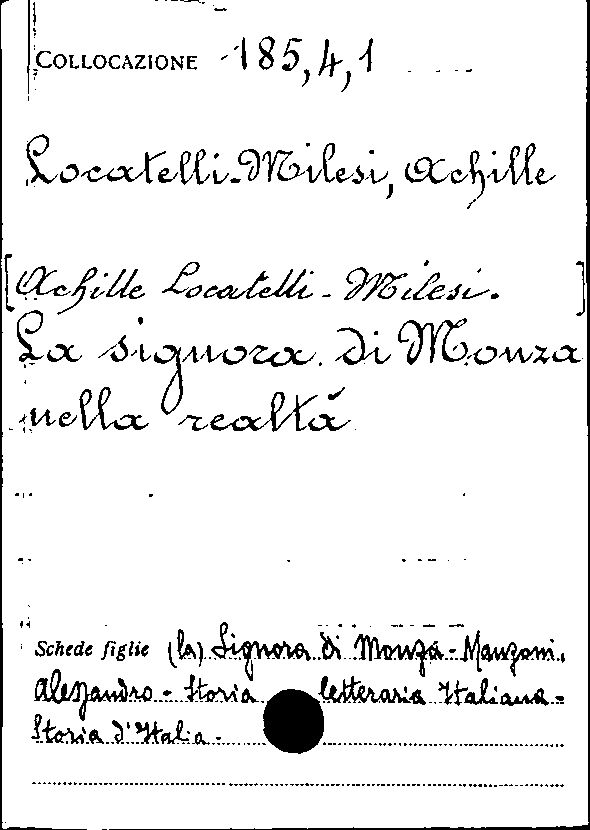 COLLOCAZIONE 185,4,1
Locatelli-Milesi, Achille
[Achille Locatelli-Milesi.]
La signora di Monza
nella realtá
Schede figlie (la) Signora di Monza - Manzoni,
Alessandro - Storia letteraria Italiana -
Storia d'Italia -